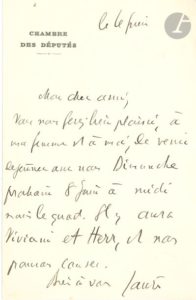 CHAMBRE
DES DÉPUTÉS
le 6 juin
Mon cher ami,
Vous nous feriez bien plaisir, à
ma femme et à moi, de venir
déjeuner avec nous Dimanche
prochain 8 juin à midi
moins le quart. Il y aura
Viviani et Herr, et nous
pourrons causer.
Bien à vous Jaurès